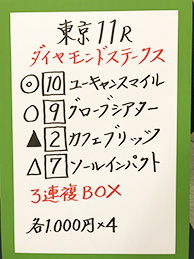 東京11R
ダイヤモンドステークス
◎10ユーキャンスマイル
○9グローブシアター
▲2カフェブリッツ
△7ソールインパクト
3連複BOX
各1.000円×4